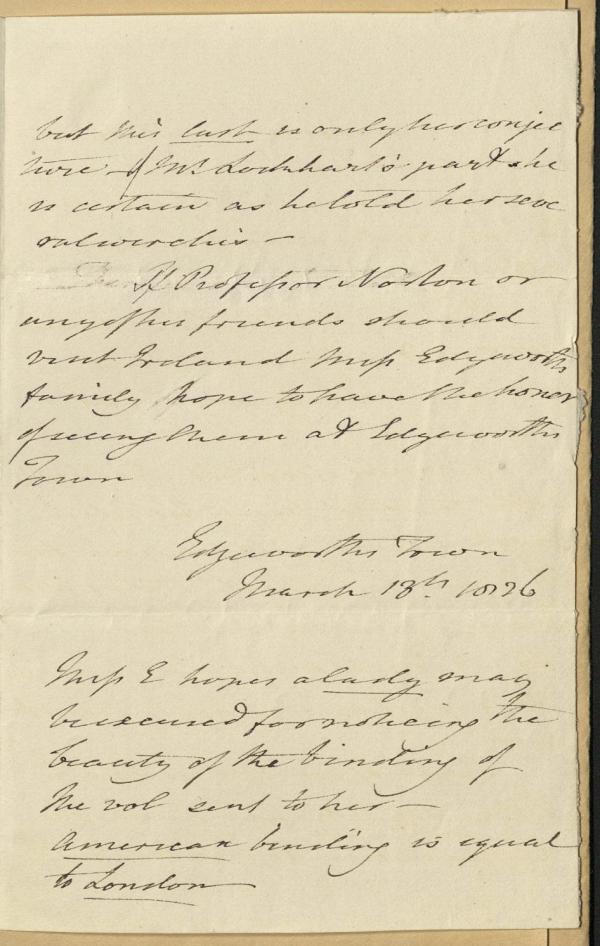 but this last is only her conjec
ture – of Mr Lockhart's part she
is certain as he told her seve
ral
If Professor Norton or
any of his friends should
visit Ireland Miss Edgeworths
family hope to have the honor
of seeing them at Edgeworths
Town
Edgeworths Town
March 13th 1826
Miss E hopes a lady may
be excused for noticing the
beauty of the binding of
the vol sent to her –
American binding is equal
to London